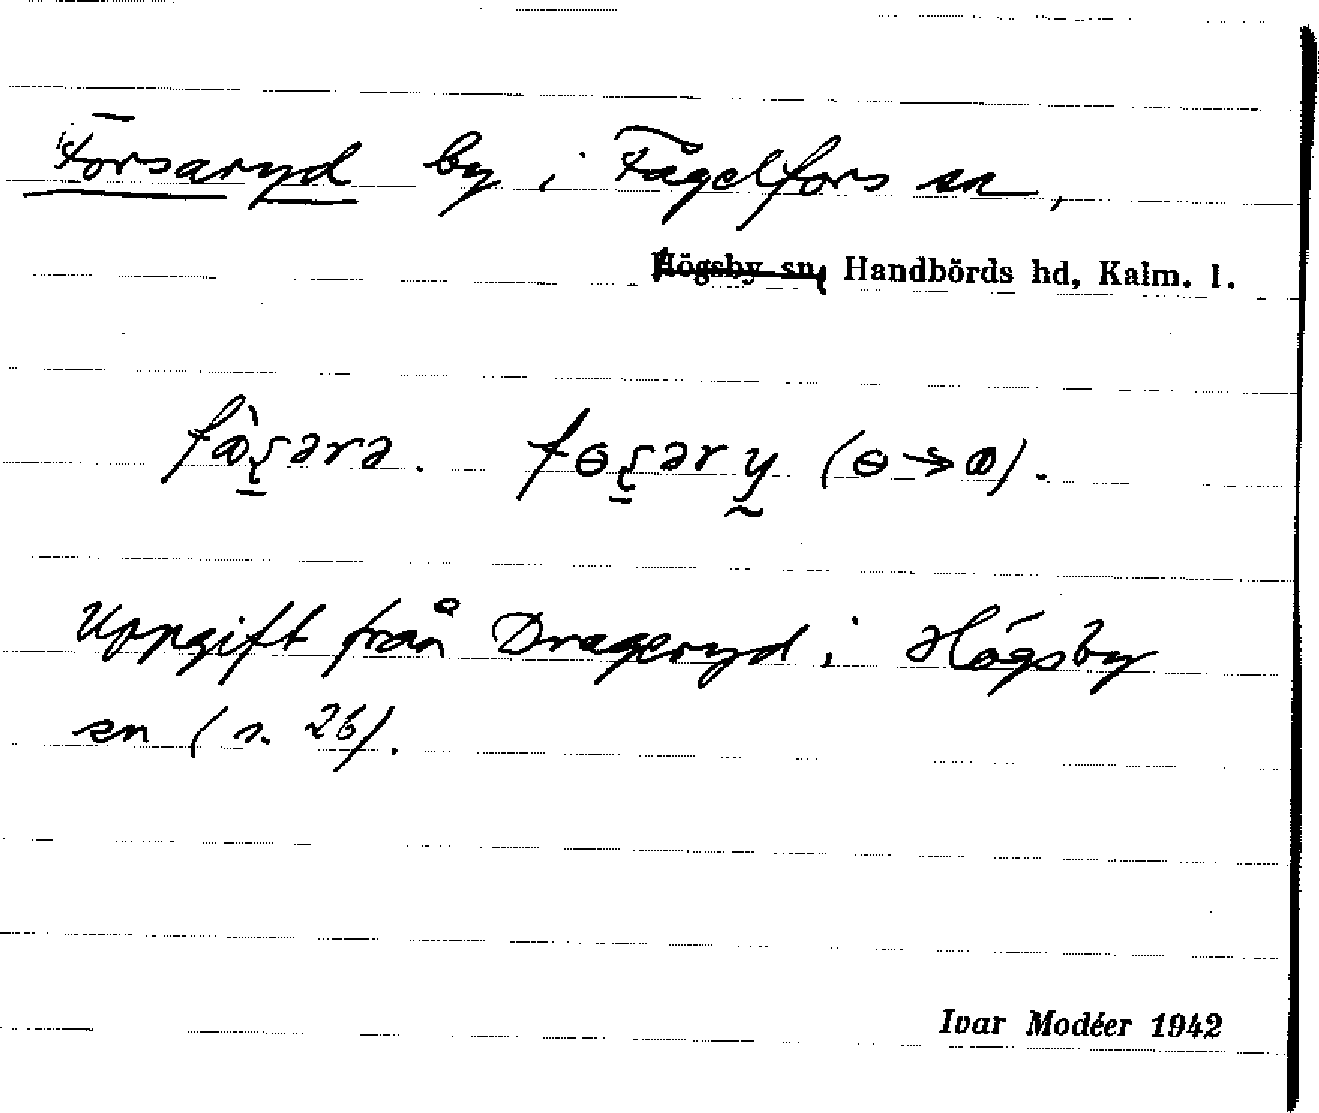 Forsaryd by i Fågelfors sn,
Högsby sn, Handbörds hd, Kalm. l.
Uppgift från Drageryd i Högsby
sn (s. 26).
Ivar Modéer 1942